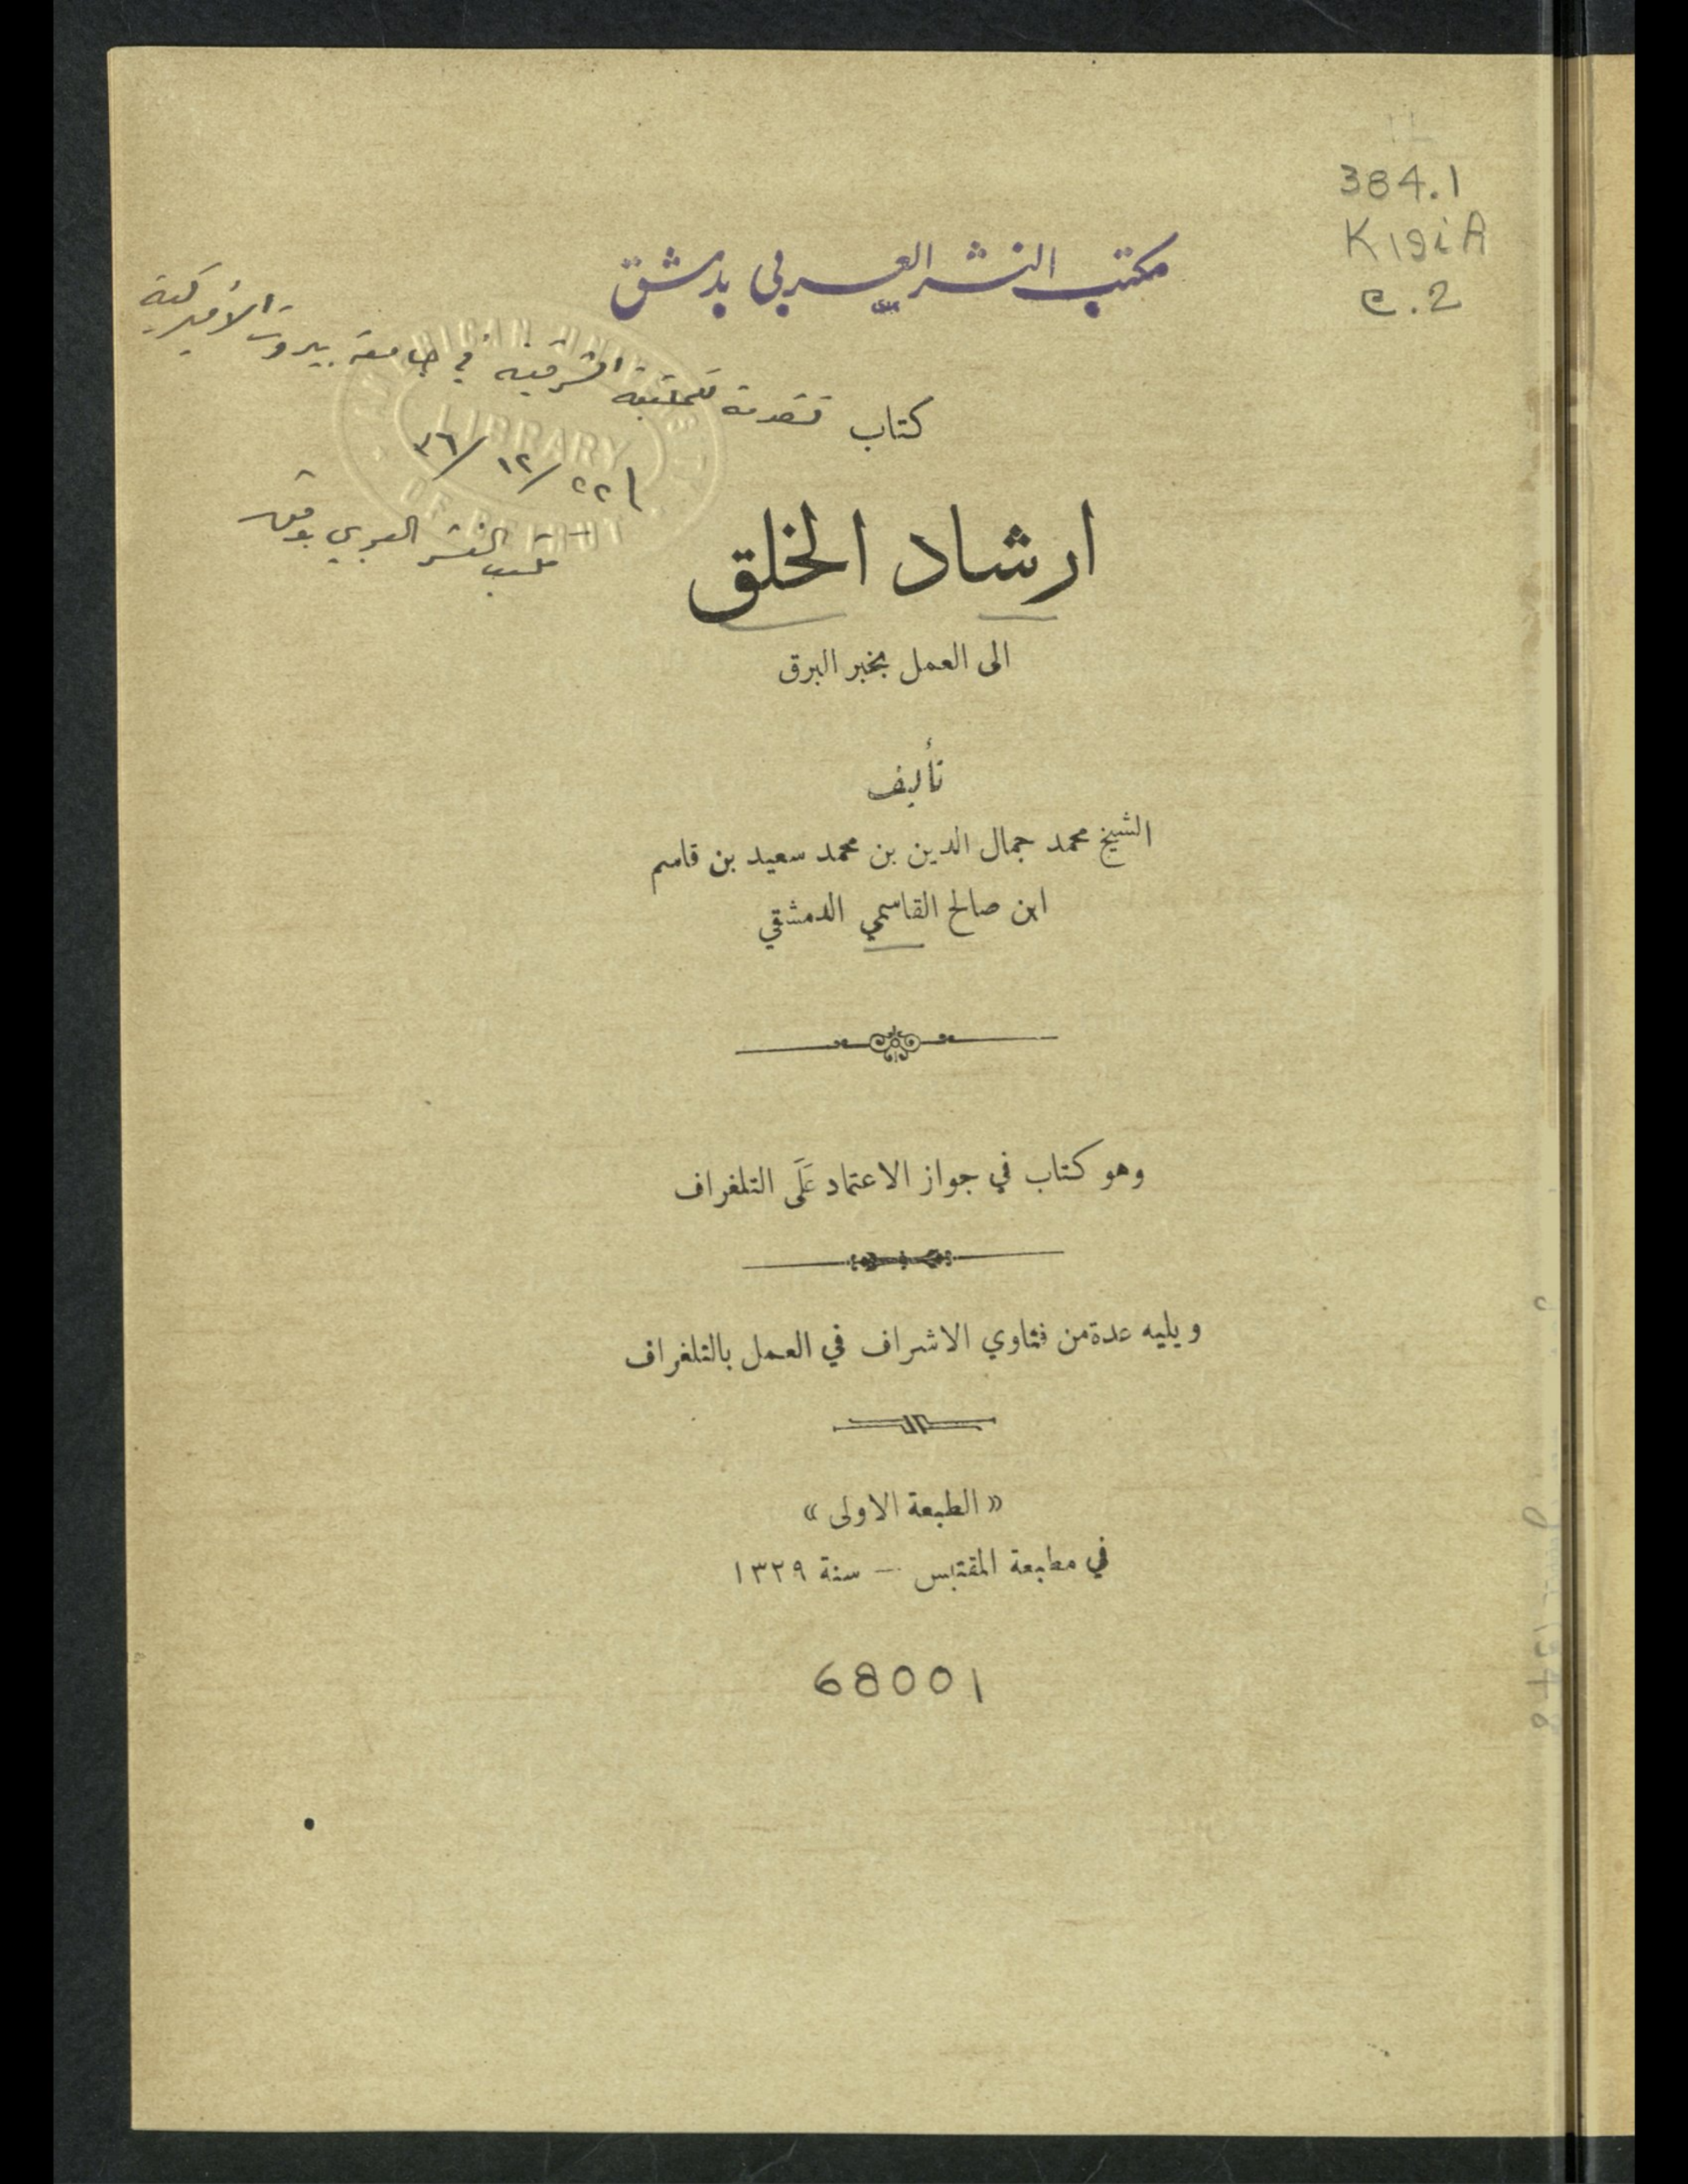 384.1
K19iA
c.2
مكتب النشر العربي بدمشق
كتاب
تقدمة للمكتبة الشرقية في جامعة بيروت الأميركية
٢٢/ ١٢/ ٣٦
مكتب النشر العربي بدمشق
AMERICAN UNIVERSITY
LIBRARY
OF BEIRUT
ارشاد الخلق
الى العمل بخبر البرق
تأليف
الشيخ محمد جمال الدين بن محمد سعيد بن قاسم
ابن صالح القاسمي الدمشقي
وهو كتاب في جواز الاعتماد عَلَى التلغراف
ويليه عدة من فتاوي الاشراف في العمل بالتلغراف
« الطبعة الاولى »
في مطبعة المقتبس — سنة ١٣٢٩
68001